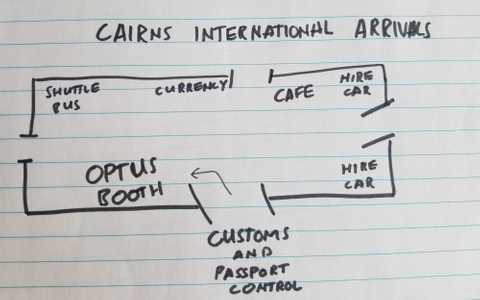 CAIRNS INTERNATIONAL ARRIVALS
SHUTTLE
BUS
CURRENCY
CAFE
HIRE
CAR
OPTUS
BOOTH
HIRE
CAR
CUSTOMS
AND
PASSPORT
CONTROL